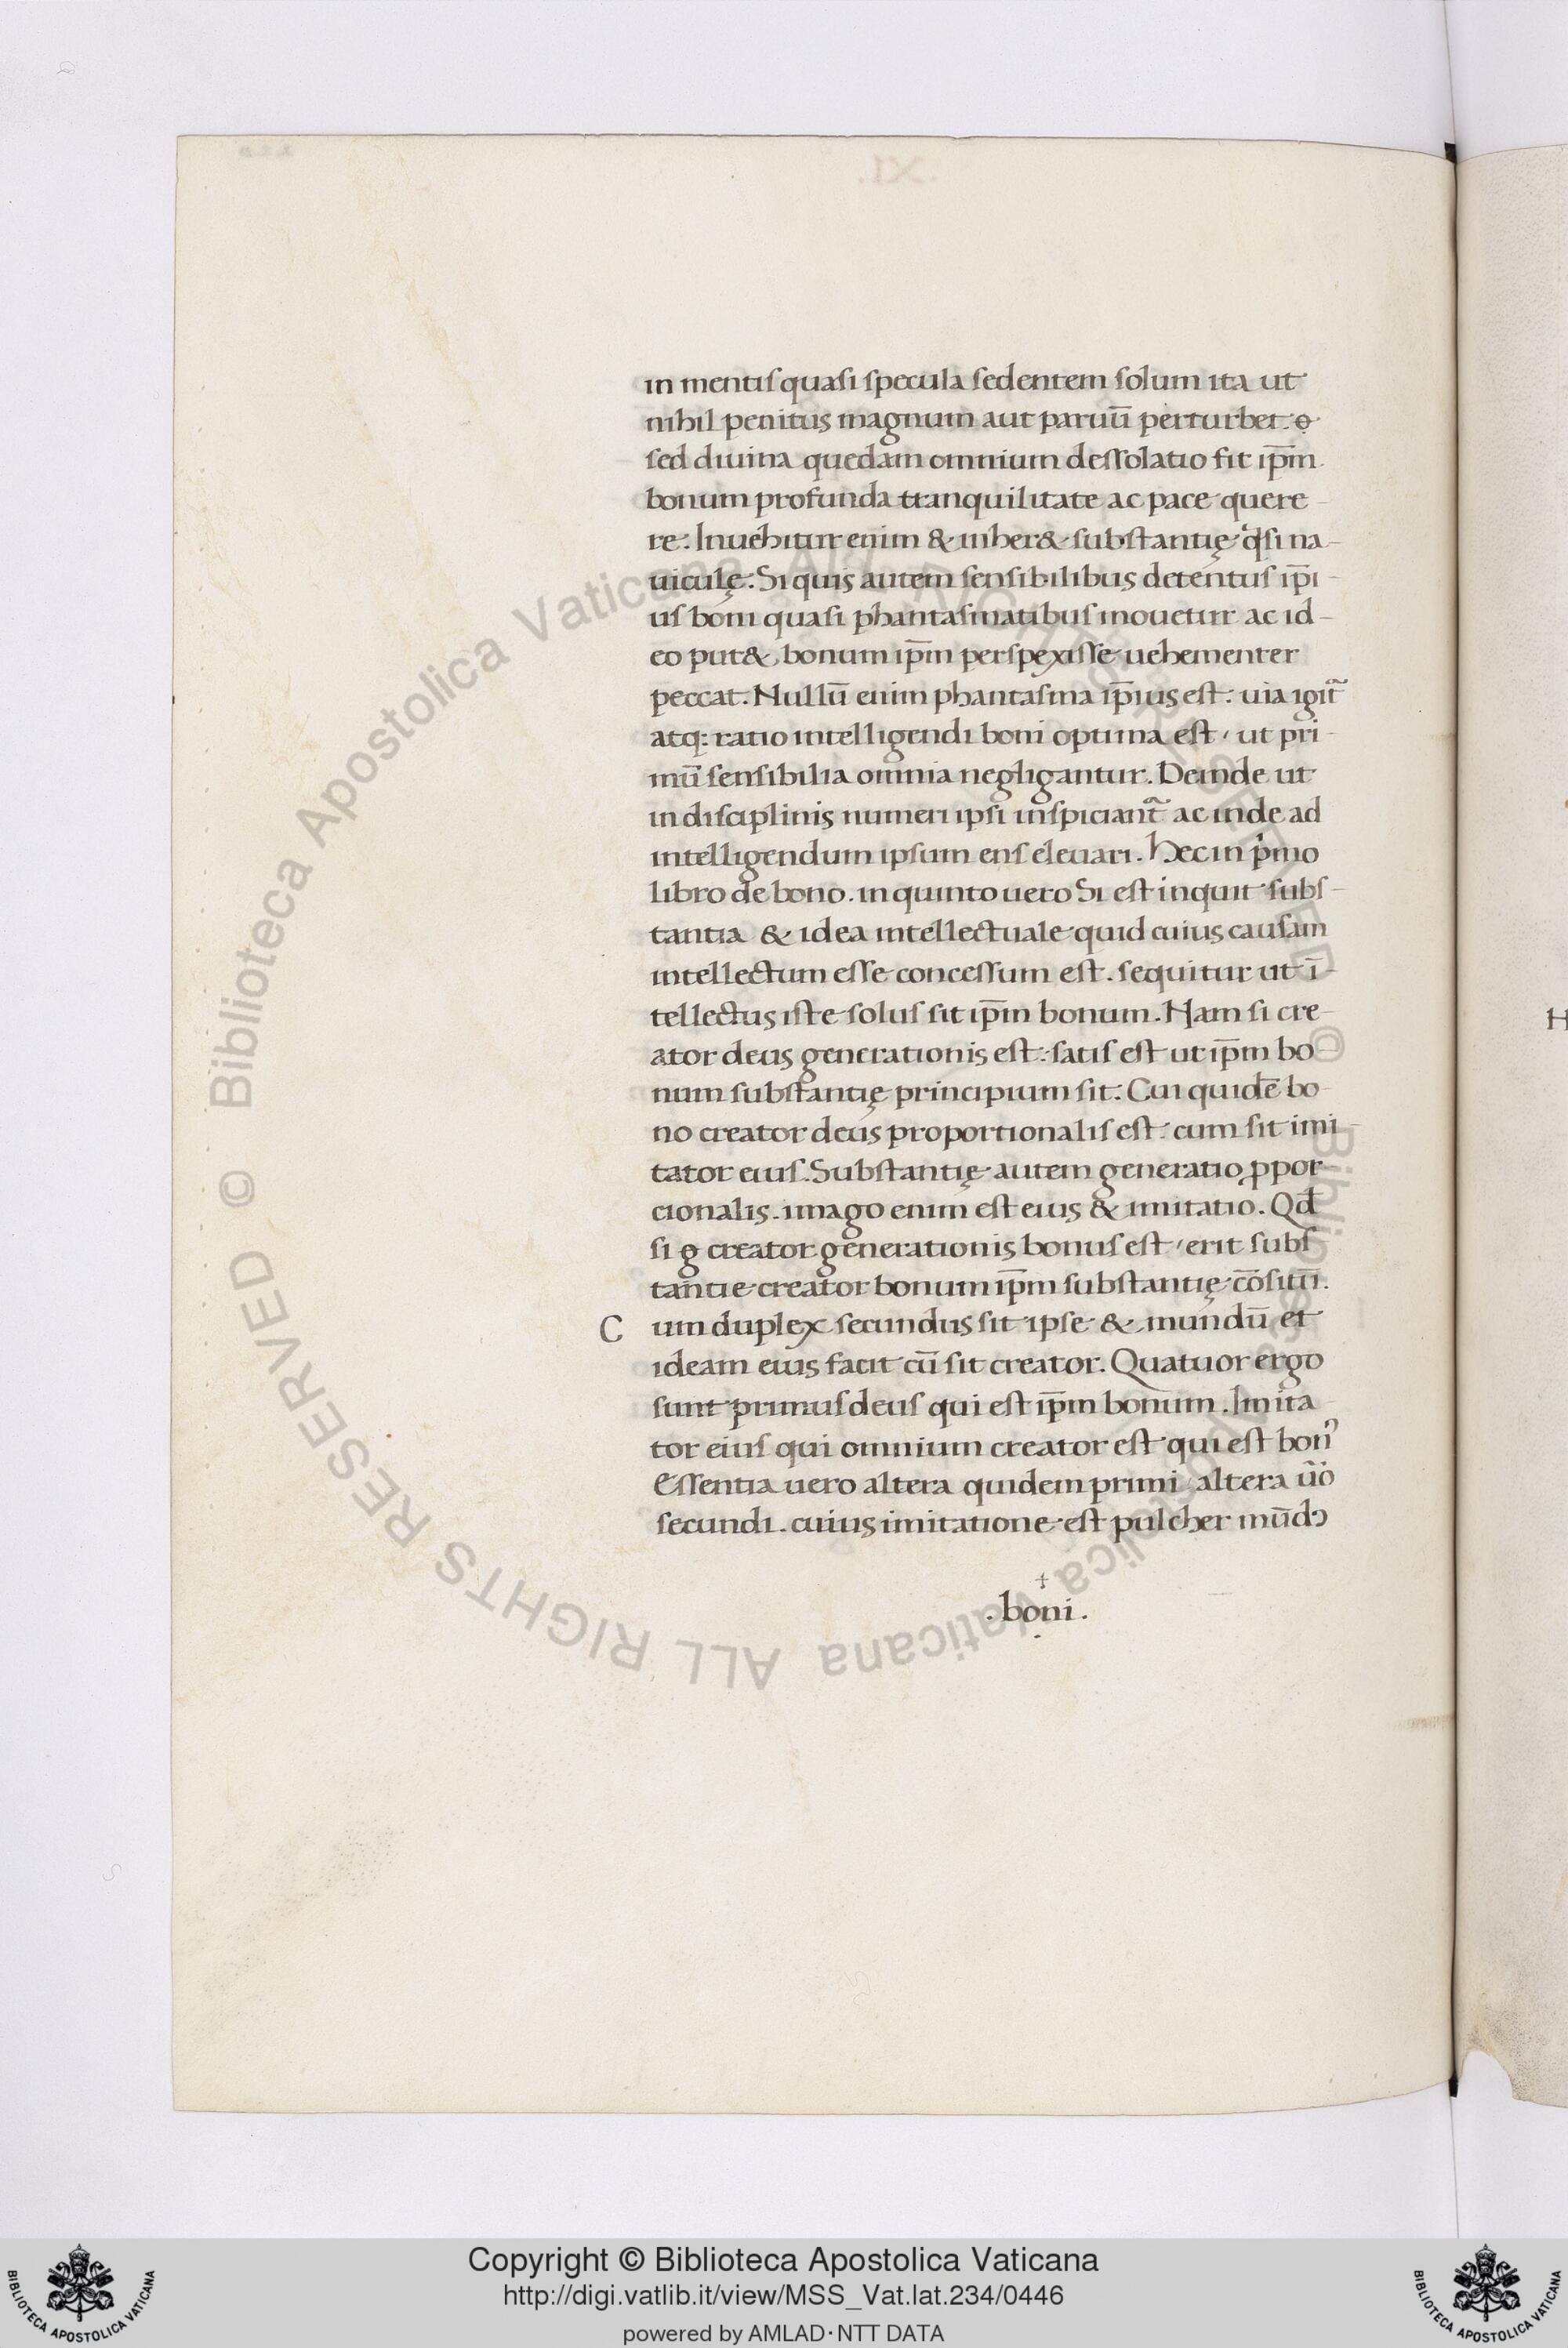 in mentis quasi specula sedentem solum ita ut
nihil penitus magnum aut paruū perturbet.
sed diuina quedam omnium dessolatio fit ip̄m
bonum profunda tranquilitate ac pace quere
re: Inuehitur enim & inher& substantię q̓si na-
uiculę: Si quis autem sensibilibus detentus ip̄i-
us boni quasi phantasmatibus mouetur ac id-
eo put& bonum ip̄m perspexisse uehementer
peccat. Nullū enim phantasma ip̄ius est: uia igit᷑
atq; ratio intelligendi boni optima est, ut pri-
mū sensibilia omnia negligantur. Deinde ut
in disciplinis numeri ipsi inspiciant᷑ ac inde ad
intelligendum ipsum ens eleuari. Hec in p̓mo
libro de bono. in quinto uero Si est inquit subs-
tantia & idea intellectuale quid cuius causam
intellectum esse concessum est. sequitur ut ī-
tellectus iste solus sit ip̄m bonum. Nam si cre-
ator deus generationis est: satis est ut ip̄m bo-
num substantię principium sit: Cui quidē bo-
no creator deus proportionalis est: cum sit imi-
tator eius. Substantię autem generatio ꝓpor-
cionalis. imago enim est eius & imitatio. Qd̄
si g̊ creator generationis bonus est, erit subs
tantie creator bonum ip̄m substantię cōsitū.
C um duplex secundus sit ipse & mundū et
ideam eius facit cū sit creator. Quatuor ergo
sunt primus deus qui est ip̄m bonum. Imita-
tor eius qui omnium creator est qui est bonꝰ
Essentia uero altera quidem primi, altera ūo
secundi. cuius imitatione est pulcher mūdꝰ
. boni .
Copyright © Biblioteca Apostolica Vaticana
http://digi.vatlib.it/view/MSS_Vat.lat.234/0446
powered by AMLAD·NTT DATA
BIBLIOTECA APOSTOLICA VATICANA
BIBLIOTECA APOSTOLICA VATICANA
© Biblioteca Apostolica Vaticana ALL RIGHTS RESERVED © Biblioteca Apostolica Vaticana ALL RIGHTS RESERVED